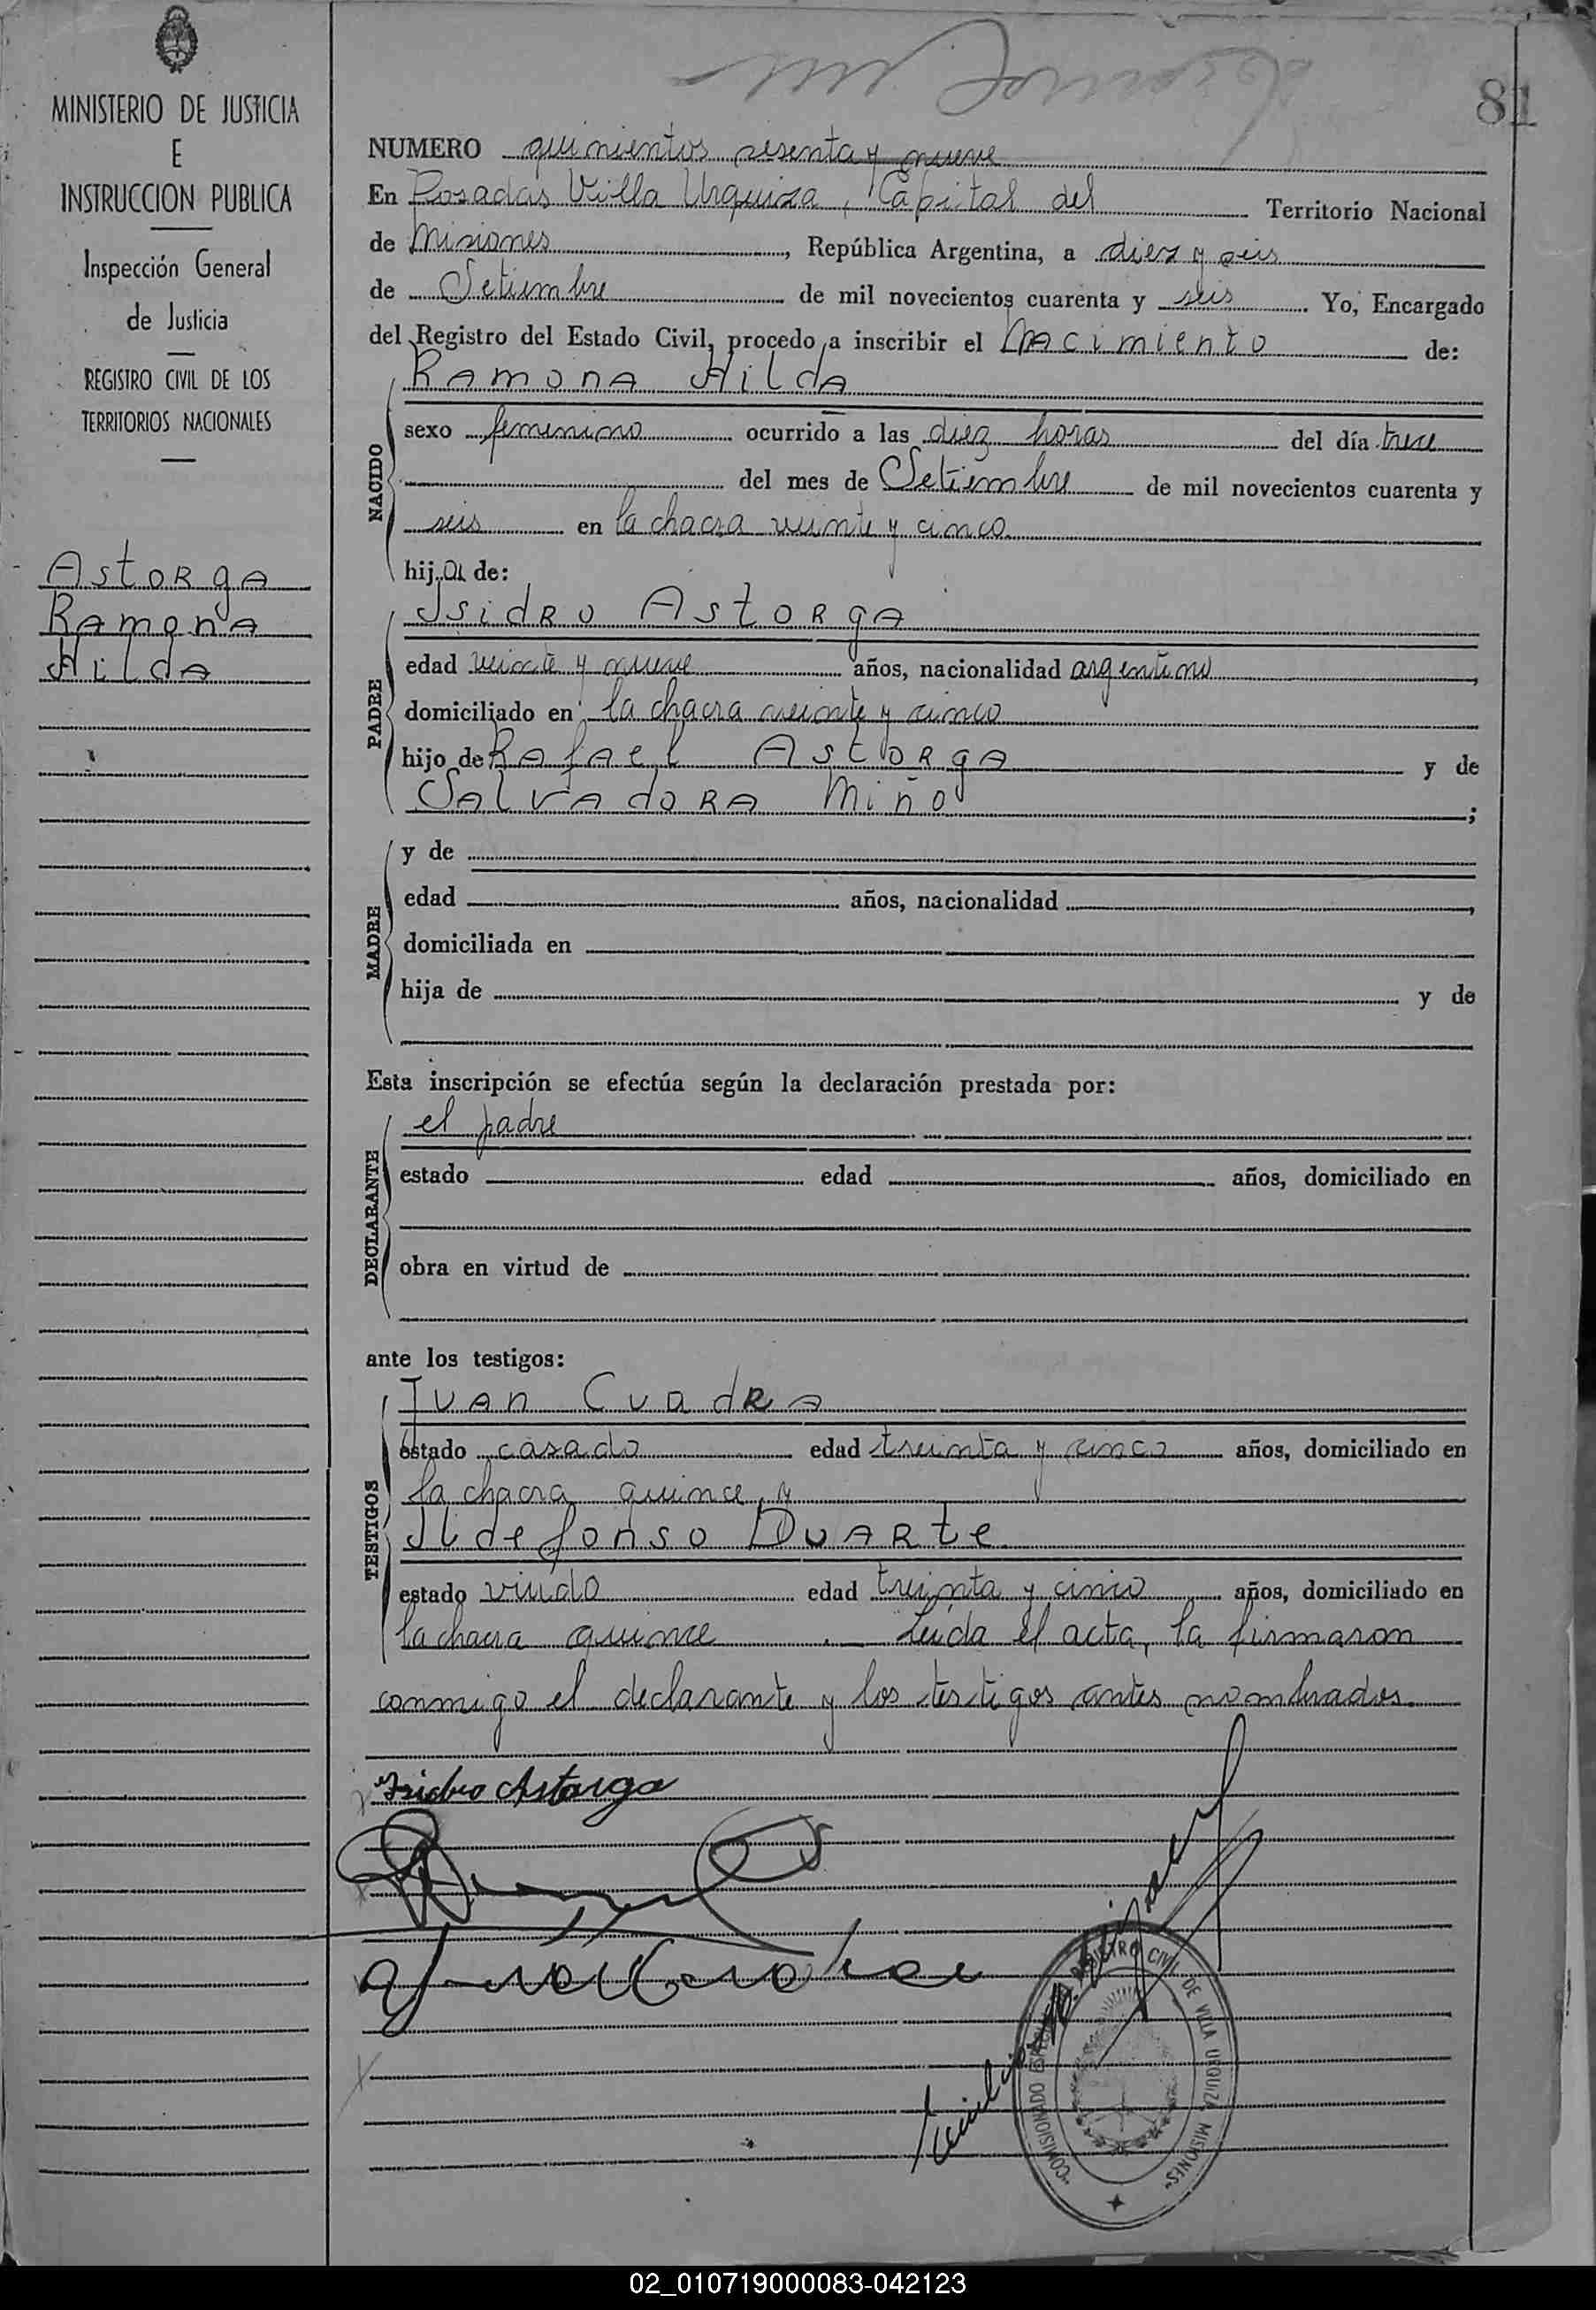 81
MINISTERIO DE JUSTICIA
E
INSTRUCCION PUBLICA
Inspección General
de Justicia
REGISTRO CIVIL DE LOS
TERRITORIOS NACIONALES
Astorga
Ramona
Hilda
NUMERO quinientos sesenta y nueve
En Posadas Villa Urquiza, Capital del Territorio Nacional
de Misiones, República Argentina, a diez y seis
de Setiembre de mil novecientos cuarenta y seis. Yo, Encargado
del Registro del Estado Civil, procedo a inscribir el Nacimiento de:
Ramona Hilda
NACIDO
sexo femenino ocurrido a las diez horas del día trece
del mes de Setiembre de mil novecientos cuarenta y
seis en la chacra veinte y cinco
hija de:
PADRE
Isidro Astorga
edad veinte y nueve años, nacionalidad argentino,
domiciliado en la chacra veinte y cinco
hijo de Rafael Astorga y de
Salvadora Miño;
MADRE
y de
edad años, nacionalidad,
domiciliada en
hija de y de
Esta inscripción se efectúa según la declaración prestada por:
DECLARANTE
el padre
estado edad años, domiciliado en
obra en virtud de
ante los testigos:
TESTIGOS
Juan Cuadra
estado casado edad treinta y cinco años, domiciliado en
la chacra quince y
Ildefonso Duarte
estado viudo edad treinta y cinco años, domiciliado en
la chacra quince. Leída el acta, la firmaron
conmigo el declarante y los testigos antes nombrados.
Isidro Astorga
COMISIONADO ESPECIAL REGISTRO CIVIL DE VILLA URQUIZA MISIONES
02_010719000083-042123